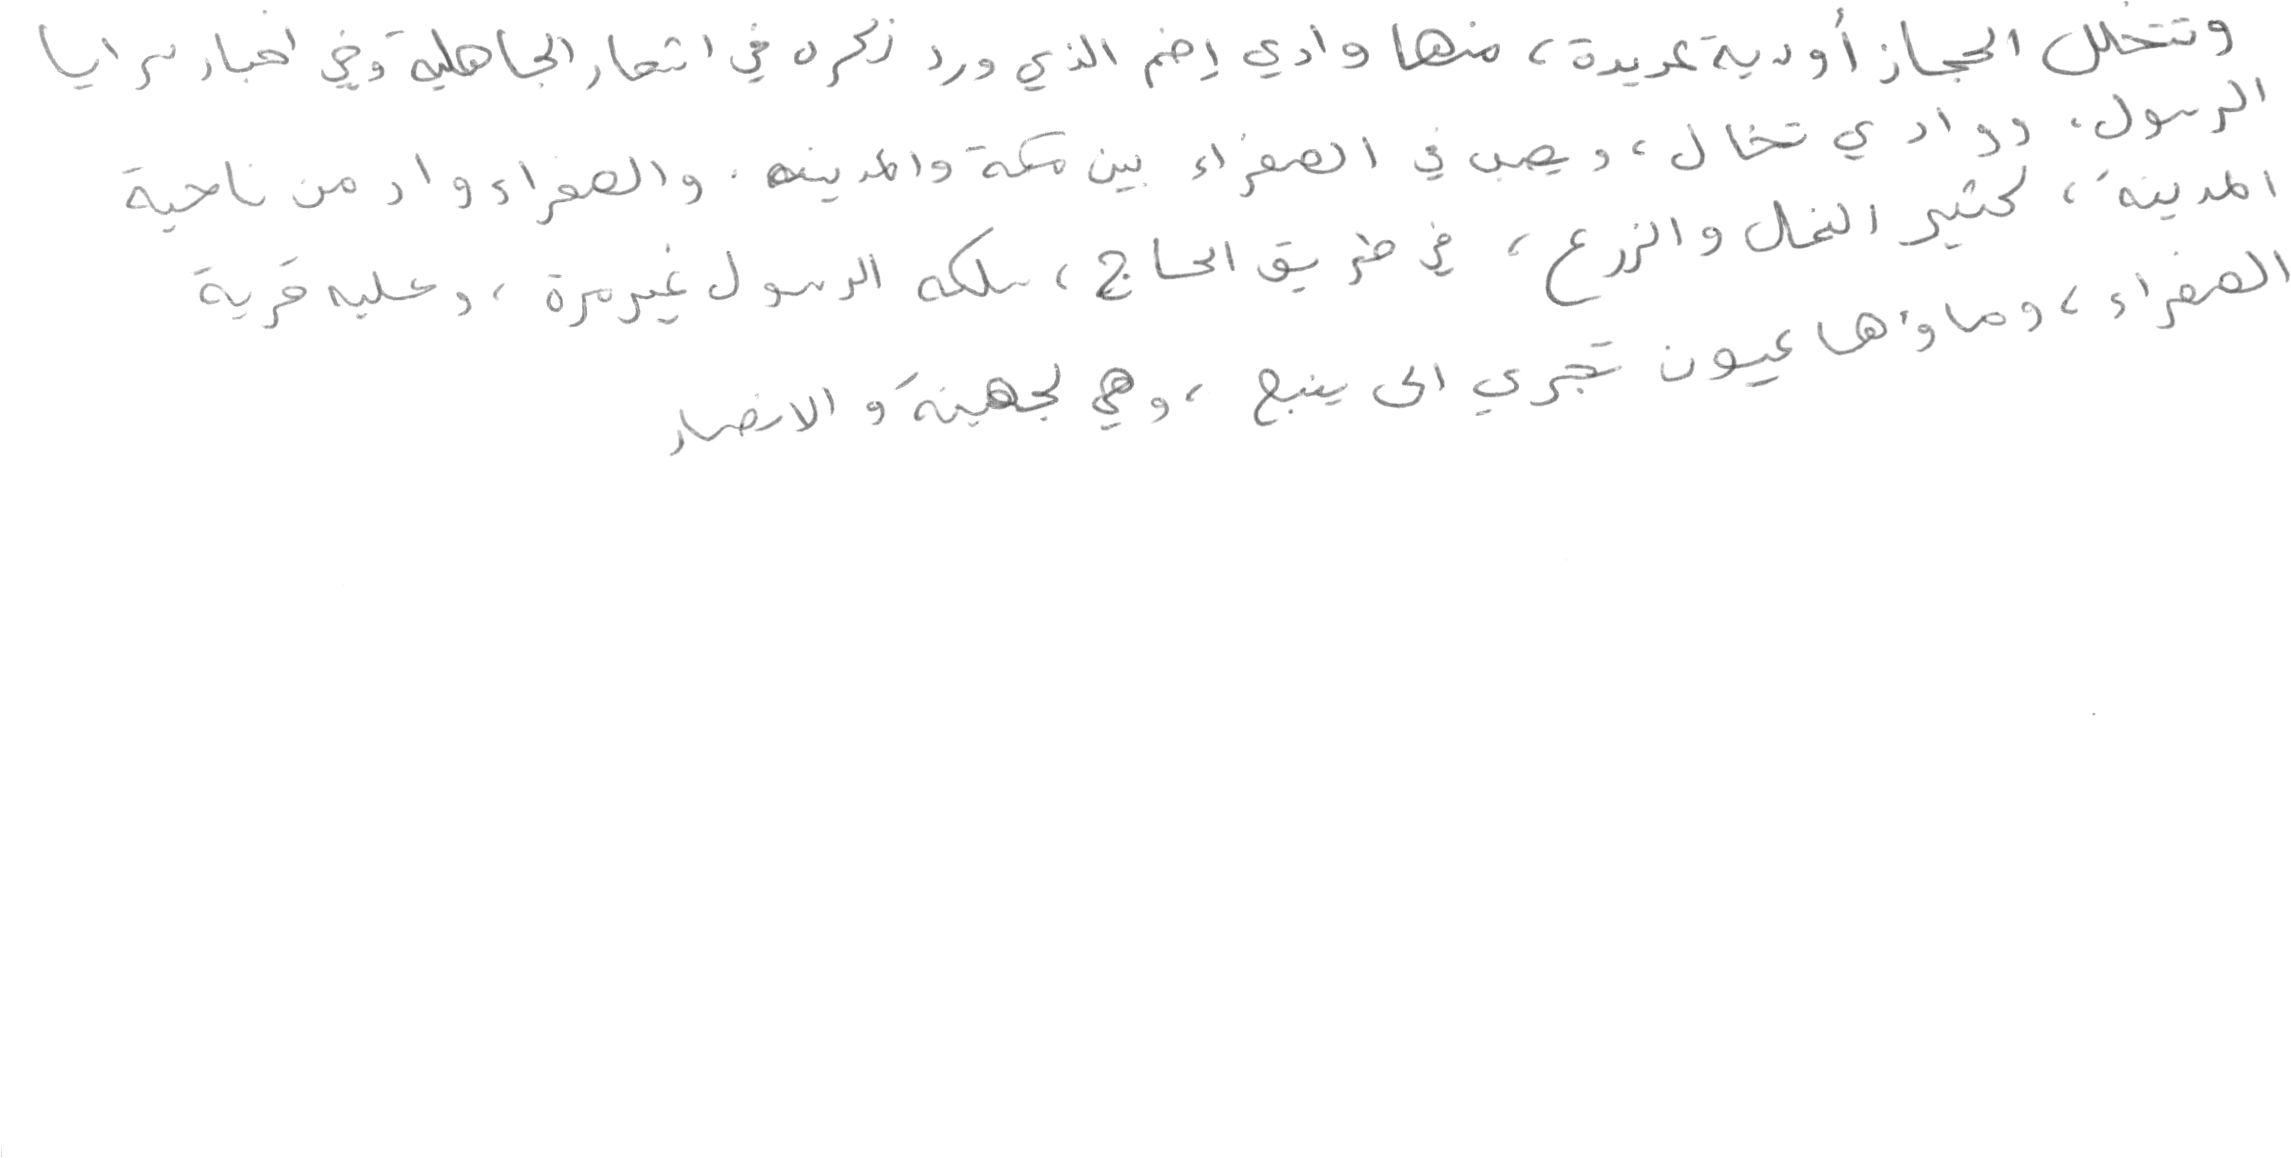 وتتخلل الحجاز أودية عديدة، منها وادي إضم الذي ورد ذكره في اشعار الجاهلية وفي اخبار سرايا
الرسول، ووادي نخال، ويصب في الصفراء بين مكة والمدينه. والصفراء واد من ناحية
المدينة، كثير النخل والزرع، في طريق الحاج، سلكه الرسول غير مرة، وعليه قرية
الصفراء، وماؤها عيون تجري الى ينبع، وهي لجهينة والانصار